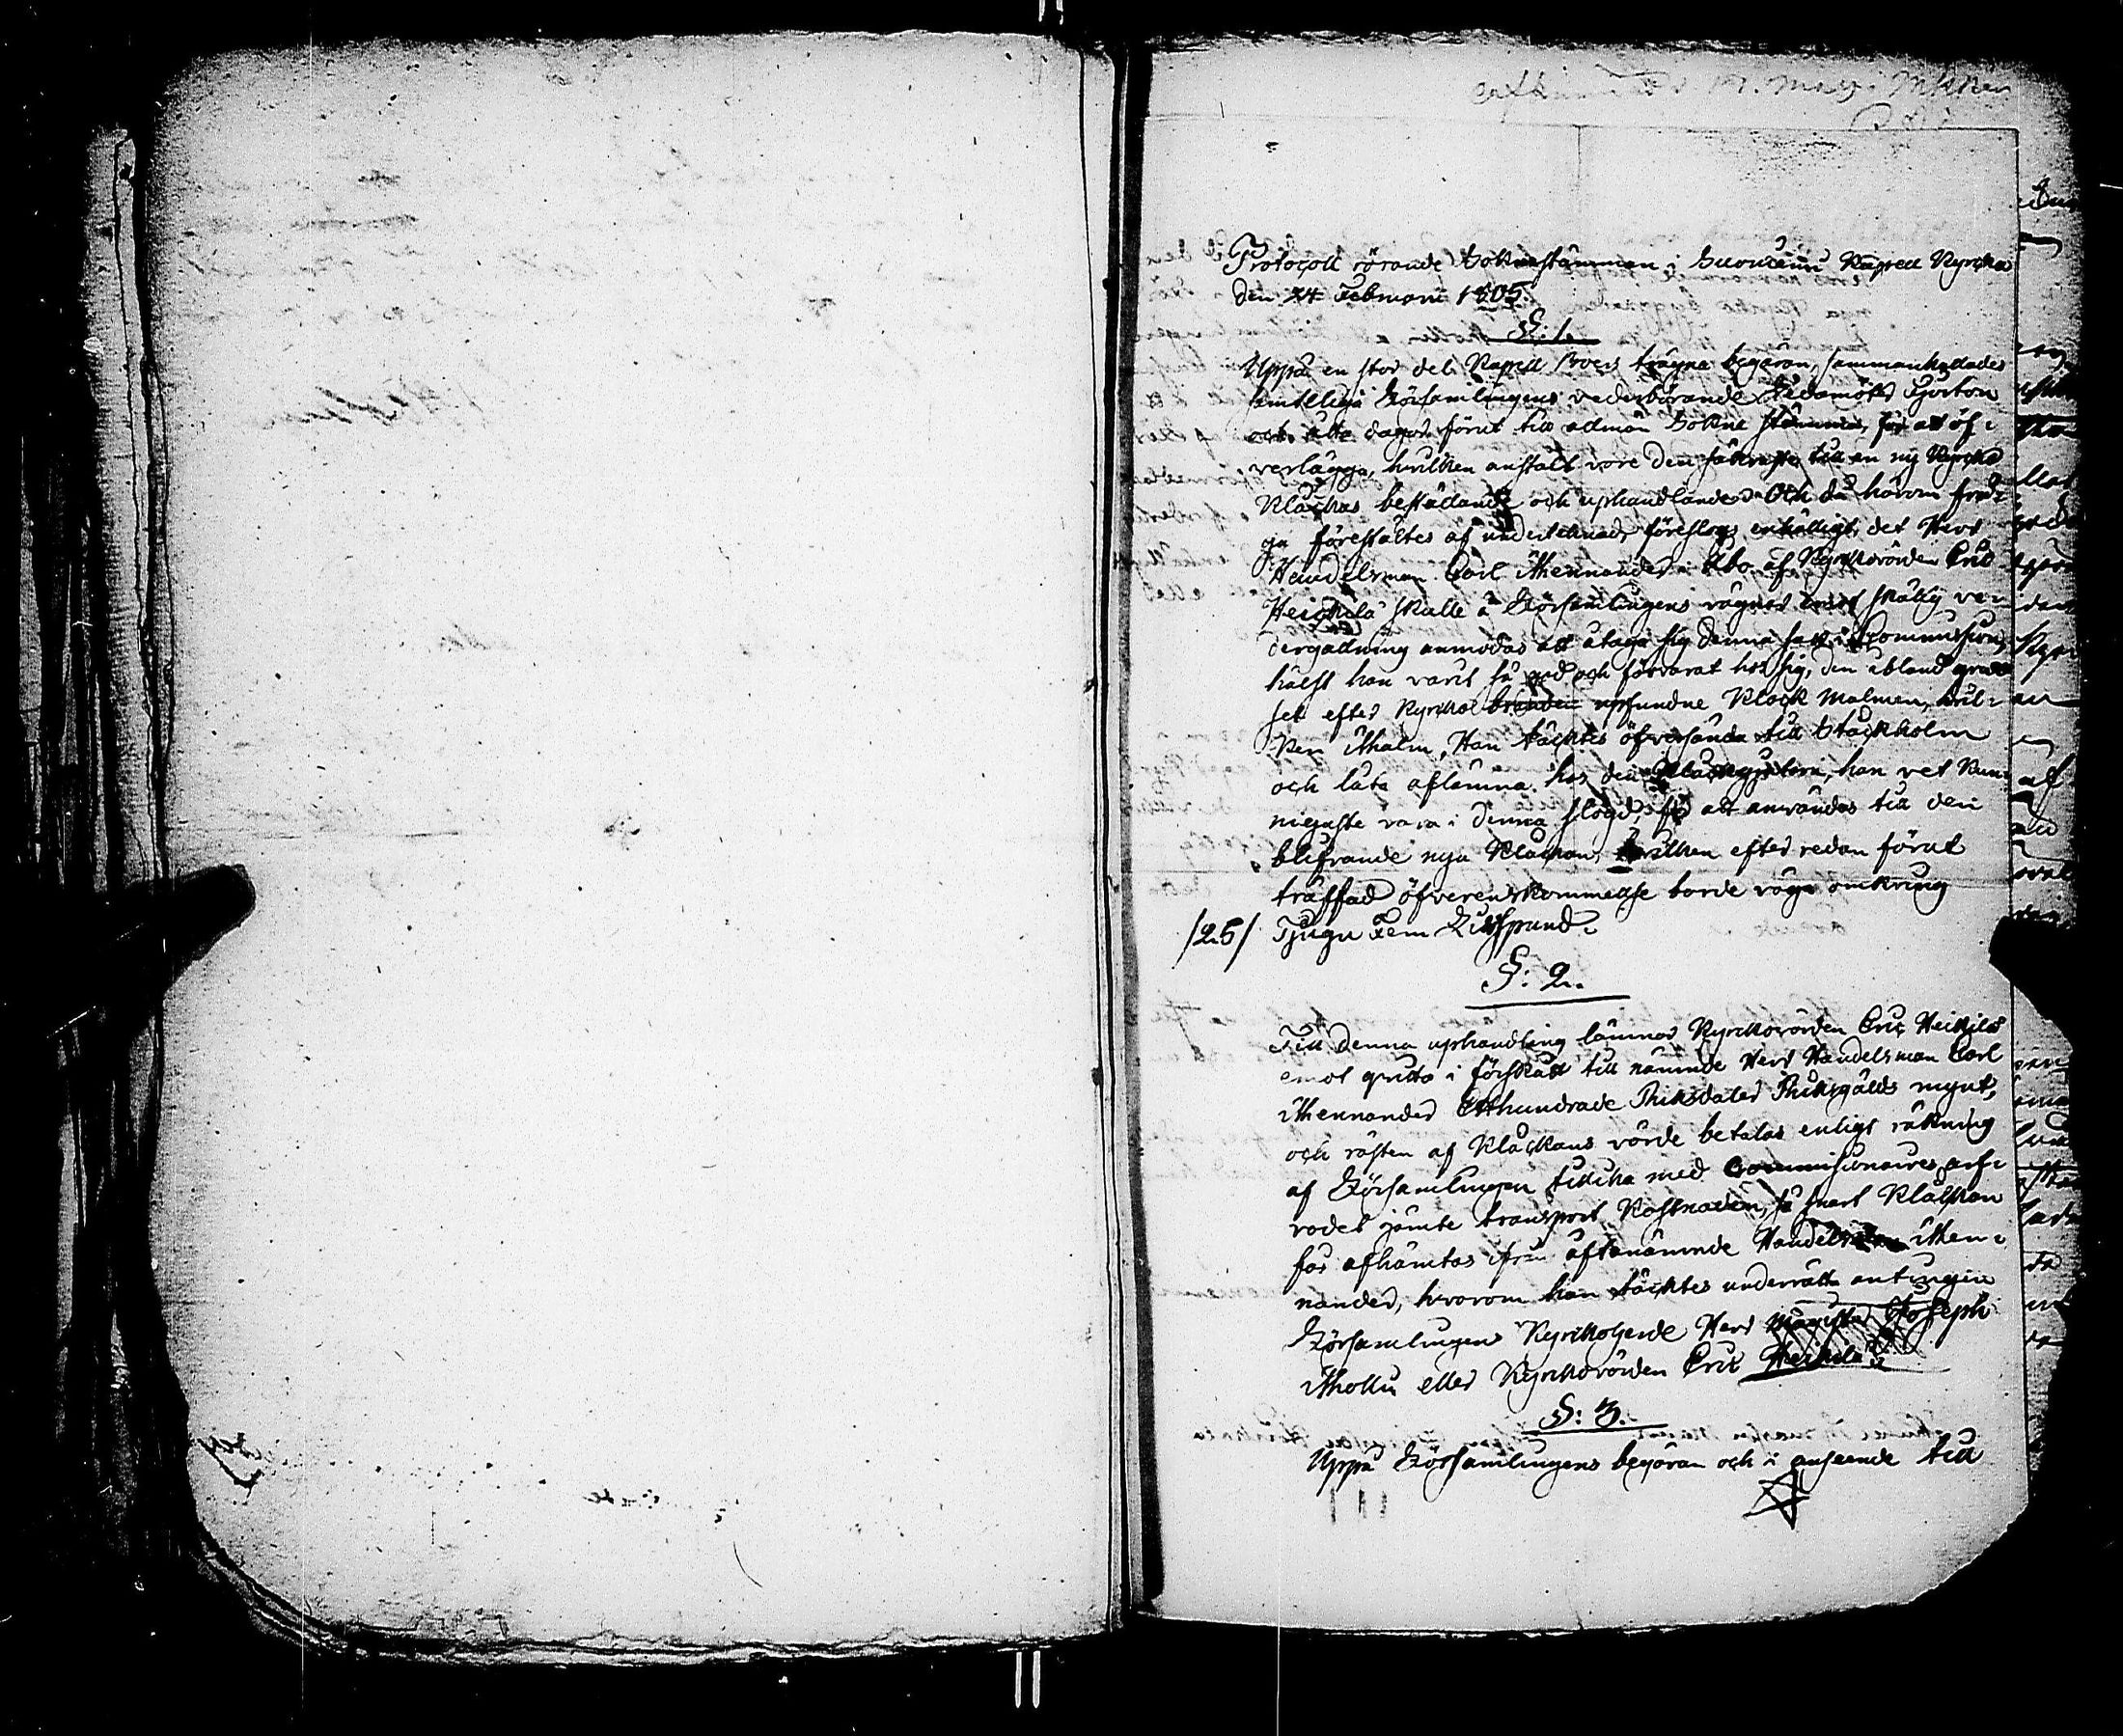 Protocoll rörande Soknestämman i Suoniemi Kapell Kyrcka
den 24 Februarii 1805.
§: 1.
Uppå en stor del Kapell Boers trägna begäran, sammankallades
samtelliga Församlingens vederbörande Ledamöter Fjorton
och åtta dagar förut till allmän Sokne stämma, för att öf-
verlägga, hvilken anstalt vore den säkraste till en ny Kyrcko
Klåckas beställande och uphandlande. Och då härom frå-
ga föreställtes af undertecknad, föreslogs enhälligt, det Herr
Handelsman Carl Mhennander i Åbo af Kyrckovärden Eric
Heickilä skulle å Församlingens vägnar emot skälig ve-
dergällning anmodas att åtaga sig denna sak i Commission,
hälst han varit så god och förvarat hos sig, den ibland gru-
set efter Kyrcko branden upfundne Klock Malmen, hvil-
ken Malm, Han täcktes öfversända till Stockholm
och låta aflämna hos den Klåckgjutare, han vet kun-
nigaste vara i denna slögd, för att användas till den
blifvande nya Klåckan, hvilken efter redan förut
träffad öfverenskommelse torde väga omkring
/25/ Tjugu Fem Lisspund.
§: 2.
Till denna uphandling lämnar Kyrckovärden Eric Heickilä
emot qvitto i förskått till nämnde Herr Handelsman Carl
Mhennander Etthundrade Riksdaler Riksgälds mynt,
och rästen af Klåckans värde betalas enligt räkning
af Församlingen tillika med Commissionaires arf-
vodet jämte transport kostnaden, så snart Klåckan
får afhämtas ifrån oftanämnde Handelsman Mhen-
nander, hvarom han täcktes underrätta antingen
Församlingens Kyrckoherde Herr Magister Joseph
Mhollii eller Kyrckovärden Eric Heickilä.
§: 3.
Uppå Församlingens begäran och i anseende till